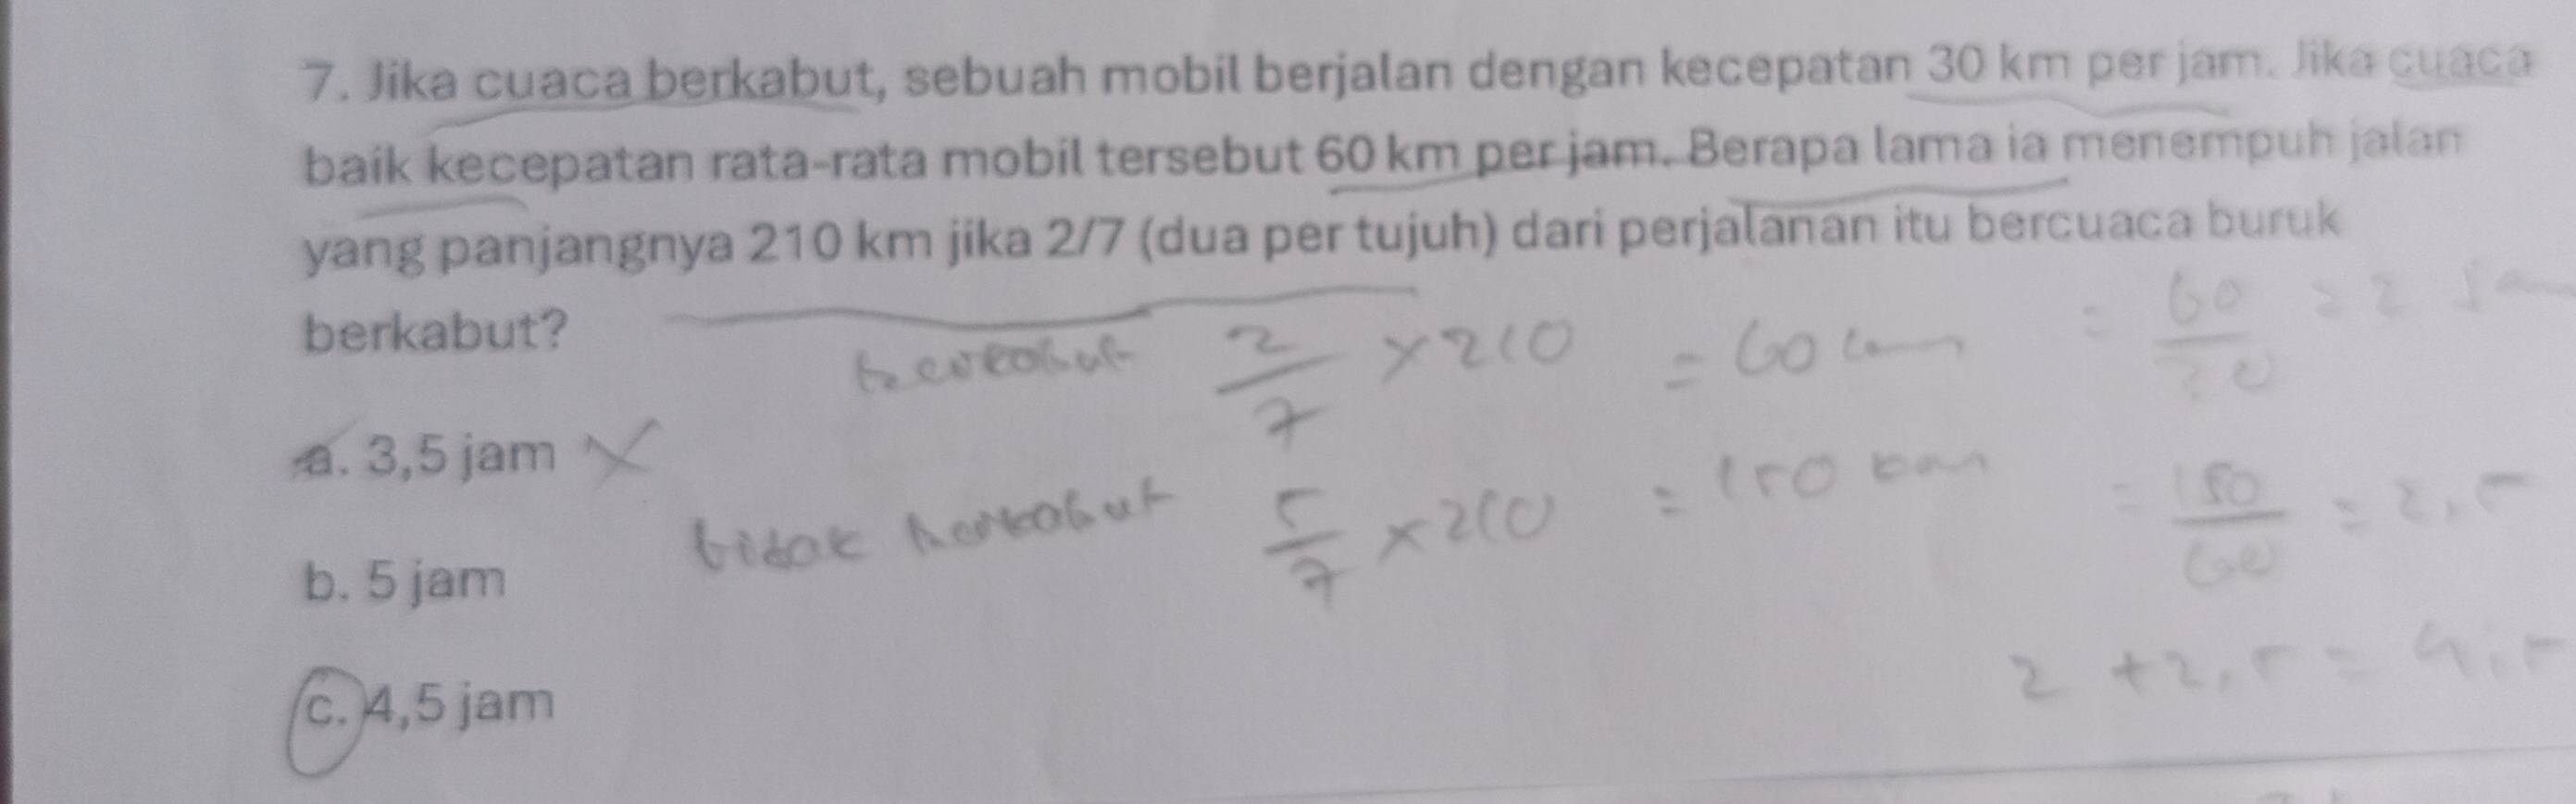 7. Jika cuaca berkabut, sebuah mobil berjalan dengan kecepatan 30 km per jam. Jika cuaca
baik kecepatan rata-rata mobil tersebut 60 km per jam. Berapa lama ia menempuh jalan
yang panjangnya 210 km jika 2/7 (dua per tujuh) dari perjalanan itu bercuaca buruk
berkabut?
berkabut 2/7 × 210 = 60 km = 60/30 = 2 jam
a. 3,5 jam ×
tidak berkabut 5/7 × 210 = 150 km = 150/60 = 2,5
b. 5 jam
2 + 2,5 = 4,5
c. 4,5 jam